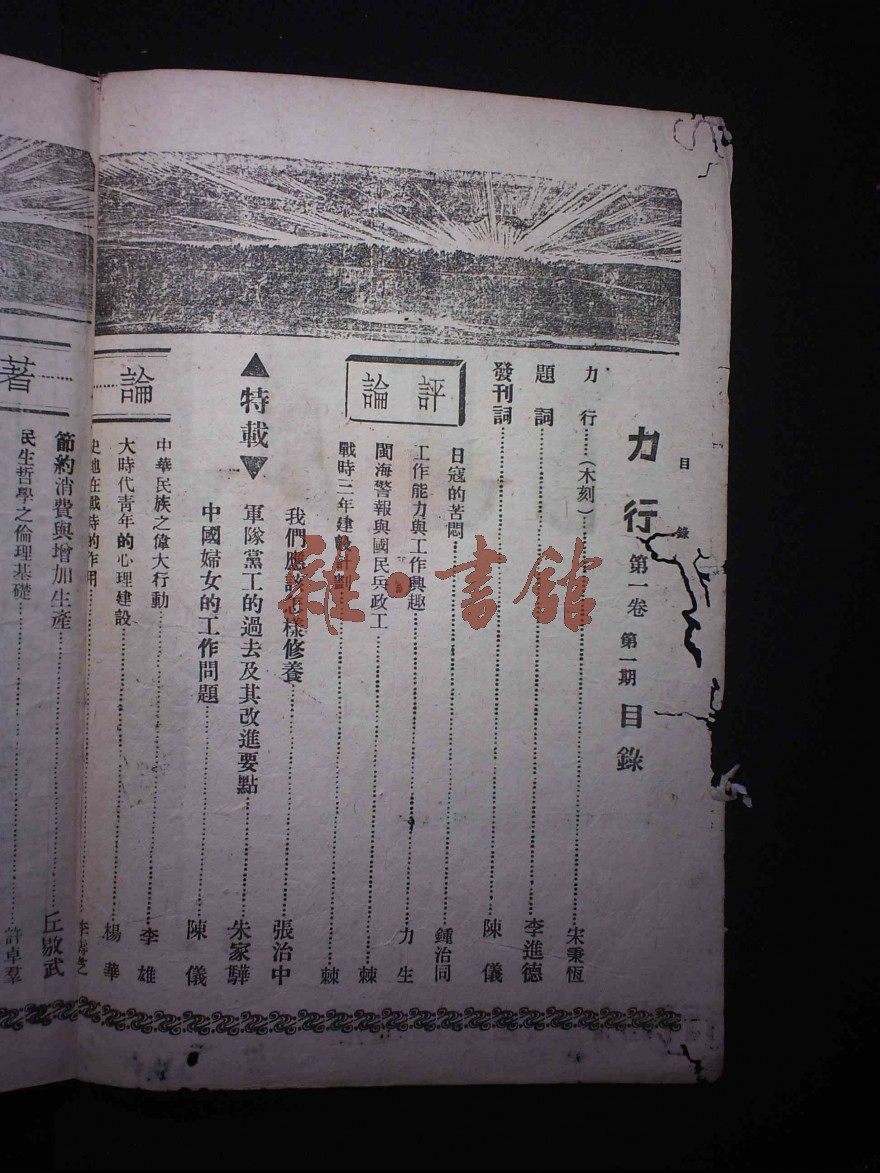 目錄
力行 第一卷 第一期 目錄
力行……(木刻)……宋秉恆
題詞……李進德
發刊詞……陳儀
評論
日寇的苦悶……鍾治同
工作能力與工作興趣……力生
閩海警報與國民兵政工……棘
戰時三年建設計劃……棘
特載
我們應該怎樣修養……張治中
軍隊黨工的過去及其改進要點……朱家驊
中國婦女的工作問題……陳儀
論……著
中華民族之偉大行動……李雄
大時代青年的心理建設……楊華
史地在戰時的作用……李
節約消費與增加生產……丘敬武
民生哲學之倫理基礎……許卓羣
雜·書館